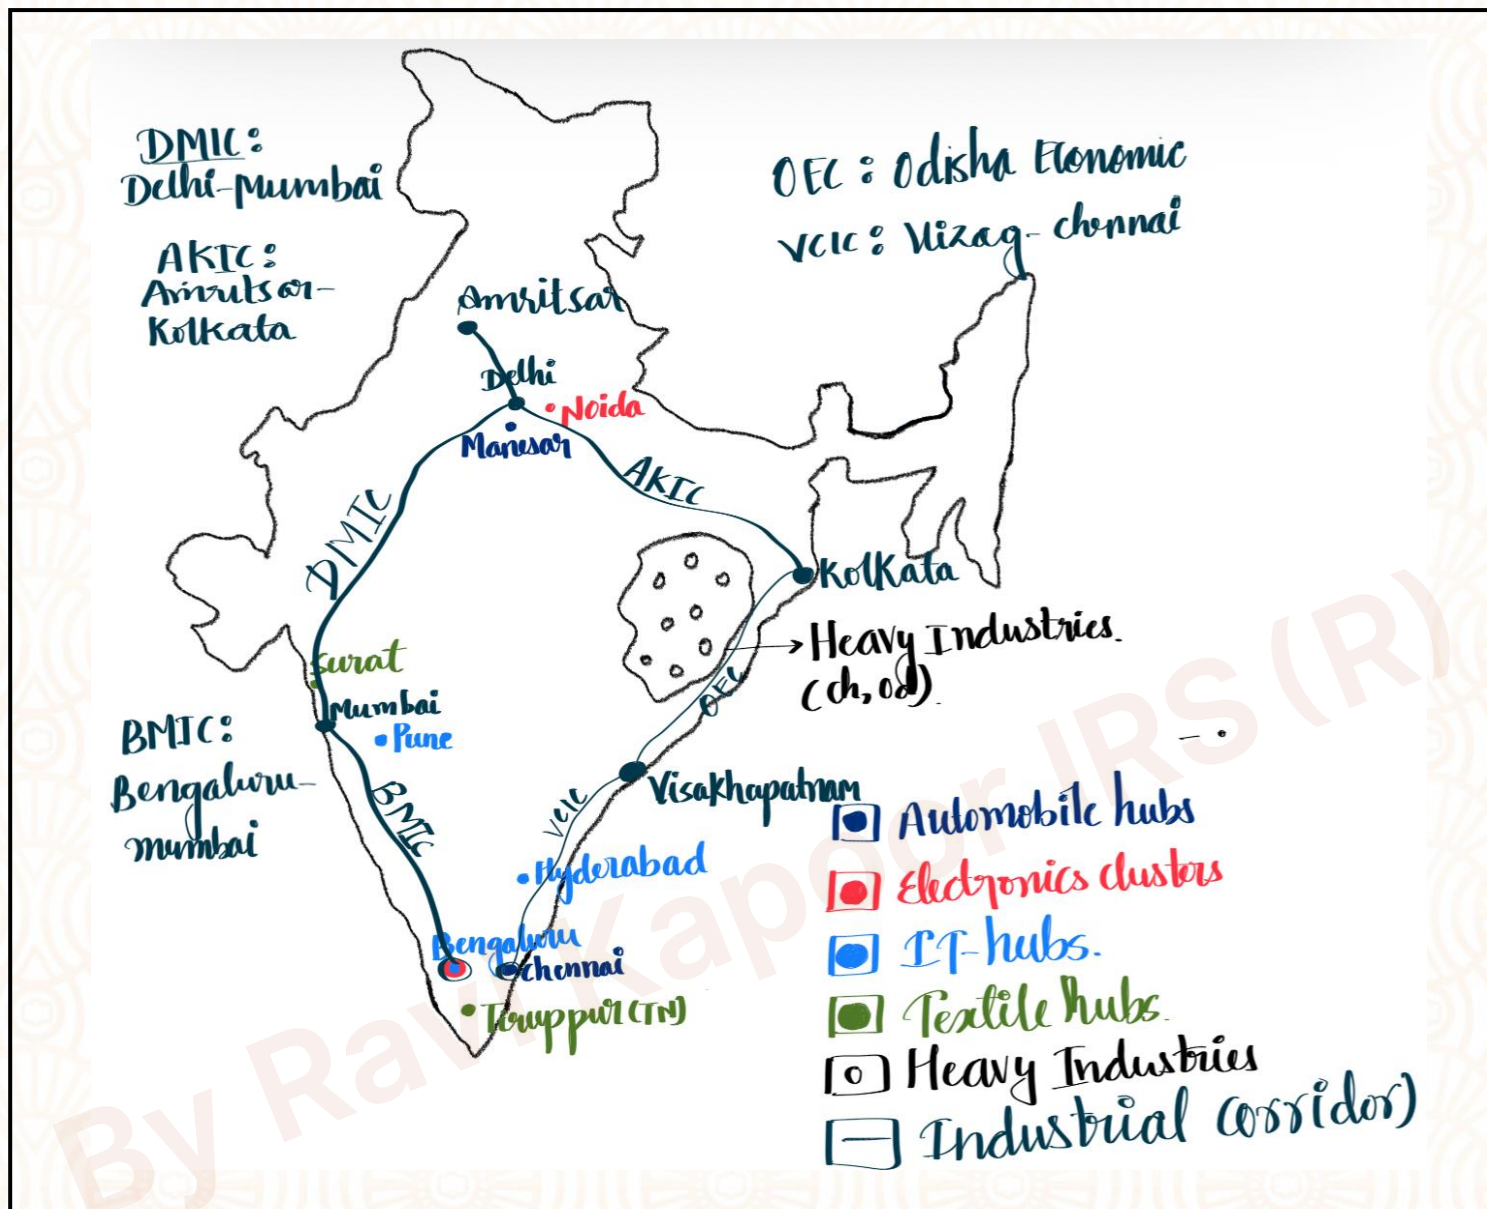 DMIC:
Delhi-Mumbai
AKIC:
Amritsar-
Kolkata
OEC : Odisha Economic
VCIC : Vizag- chennai
Amritsar
Delhi
Noida
Manesar
AKIC
DMIC
Kolkata
Heavy Industries.
(ch, od).
OEC
Surat
Mumbai
Pune
BMIC:
Bengaluru-
mumbai
BMIC
Visakhapatnam
VCIC
Hyderabad
Bengaluru
Chennai
Tiruppur (TN)
Automobile hubs
Electronics clusters
IT-hubs.
Textile hubs.
Heavy Industries
Industrial corridor)
By Ravi Kapoor IRS (R)